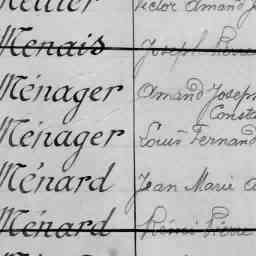 Victor Amand
Menais Joseph Pierre
Ménager Amand Joseph
Consta
Ménager Louis Fernand
Ménard Jean Marie
Ménard Rémi Pierre